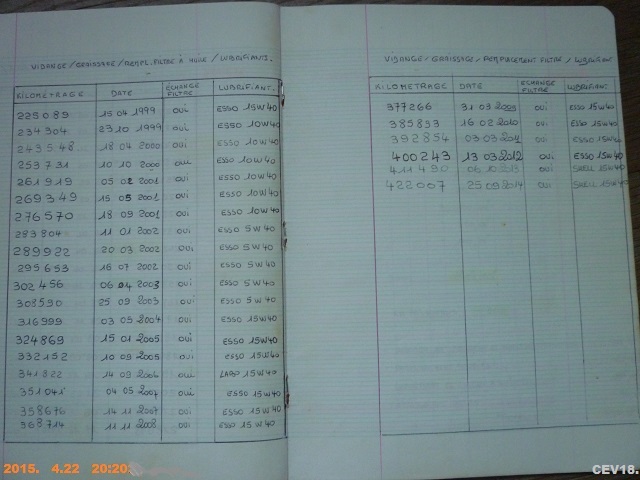 VIDANGE / GRAISSAGE / REMPL. FILTRE À HUILE / LUBRIFIANTS.
KILOMÉTRAGE DATE ÉCHANGE FILTRE LUBRIFIANT.
225089 15 04 1999 OUI ESSO 15W40
234304 23 10 1999 OUI ESSO 10W40
243548 18 04 2000 OUI ESSO 10W40
253731 10 10 2000 OUI ESSO 10W40
261919 05 02 2001 OUI ESSO 10W40
269349 15 05 2001 OUI ESSO 10W40
276570 18 09 2001 OUI ESSO 10W40
283804 11 01 2002 OUI ESSO 5W40
289922 20 03 2002 OUI ESSO 5W40
295653 16 07 2002 OUI ESSO 5W40
302456 06 04 2003 OUI ESSO 5W40
308590 25 09 2003 OUI ESSO 5W40
316999 03 05 2004 OUI ESSO 15W40
324869 15 01 2005 OUI ESSO 15W40
332152 10 09 2005 OUI ESSO 15W40
341822 14 09 2006 OUI LABO 15W40
351041 04 05 2007 OUI ESSO 15W40
358676 14 11 2007 OUI ESSO 15W40
368714 11 11 2008 OUI ESSO 15W40
VIDANGE / GRAISSAGE / REMPLACEMENT FILTRE / LUBRIFIAN
KILOMETRAGE DATE ECHANGE FILTRE LUBRIFIANT
377266 31 03 2009 OUI ESSO 15W40
385833 16 02 2010 OUI ESSO 15W40
392854 03 03 OUI ESSO 15W40
400243 13 03 2012 OUI ESSO 15W40
411490 2013 OUI SHELL 15W40
422007 25 09 2014 OUI SHELL 15W40
2015. 4.22 20:20
CEV18.